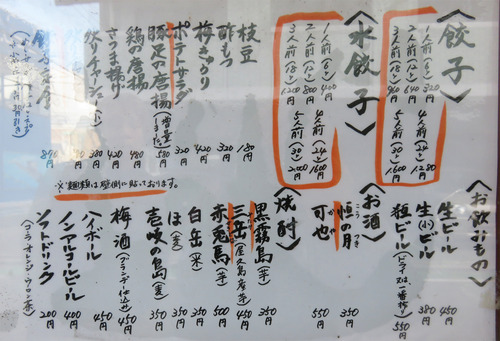 〈餃子〉
1人前(6ヶ) 320円
2人前(12ヶ) 640円
3人前(18ヶ) 960円
4人前(24ヶ) 1,280円
5人前(30ヶ) 1,600円
〈水餃子〉
1人前(6ヶ) 400円
2人前(12ヶ) 800円
3人前(18ヶ) 1,200円
4人前(24ヶ) 1,600円
5人前(30ヶ) 2,000円
枝豆 180円
酢もつ 320円
梅きゅうり 420円
ポテトサラダ 320円
豚足の唐揚(増量しました) 580円
鶏の唐揚 480円
さつま揚げ 420円
380円
870円
※麺類は壁側に貼っております。
〈お飲みもの〉
生ビール 450円
生(小)ビール 380円
瓶ビール(ドライ又は一番搾り) 550円
〈お酒〉
恒の月 350円
可也 550円
〈焼酎〉
黒霧島(芋) 350円
三岳(屋久島産芋) 450円
赤兎馬(芋) 500円
白岳(米) 350円
ほ(麦) 350円
壱岐の島(麦) 350円
梅酒(ブランデー仕込み) 450円
ハイボール 450円
ノンアルコールビール 400円
ソフトドリンク(コーラ・オレンジ・ウーロン茶) 200円